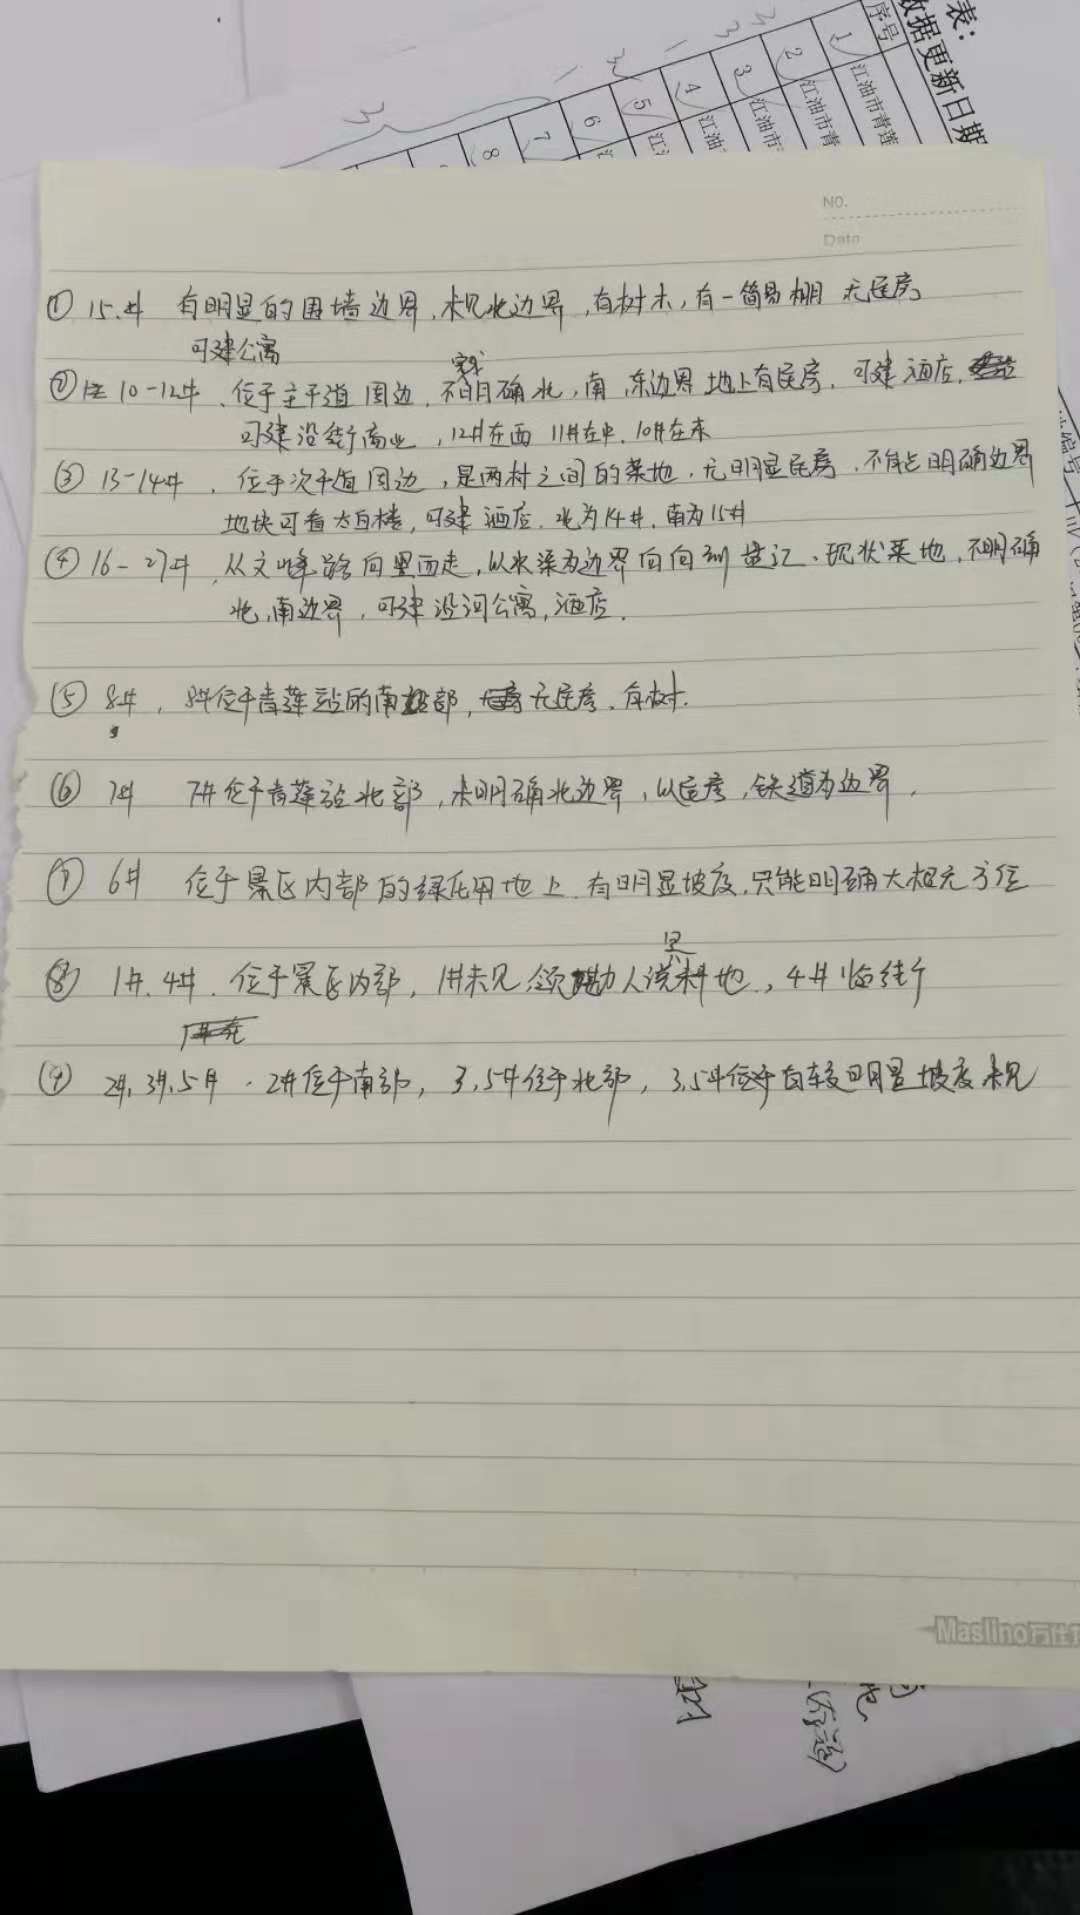 表：
数据更新日期
序号
1 江油市青莲
2 江油市青
3 江油市
4 江油
5 江
6 江
7
8
NO.
Date
① 15.# 有明显的围墙边界，未见北边界，有树木，有一简易棚 无民房
可建公寓
② 10-12#、位于主干道周边，不明确北，南，东边界 地上有民房，可建酒店，
可建沿街商业，12#在西 11#在中、10#在东
③ 13-14#，位于次干道周边，是两村之间的菜地，无明显民房，不能明确边界
地块可看太白楼，可建酒店，北为14#，南为15#
④ 16-27#，从文峰路向里面走，以水渠为边界向向，现状菜地，不明确
北，南边界，可建沿河公寓，酒店．
⑤ 8#，8#位于青莲站的南部，无民房、有树．
⑥ 7# 7#位于青莲站北部，未明确北边界，以民房，铁道为边界，
⑦ 6# 位于景区内部的绿化用地上，有明显坡度，只能明确大概方位
⑧ 1#、4#、位于景区内部，1#未见，领勘人说是耕地，4#临街
⑨ 2#，3#，5#，2#位于南部，3，5#位于北部，3.5#位于有较明显坡度 未见
Maslino万仕